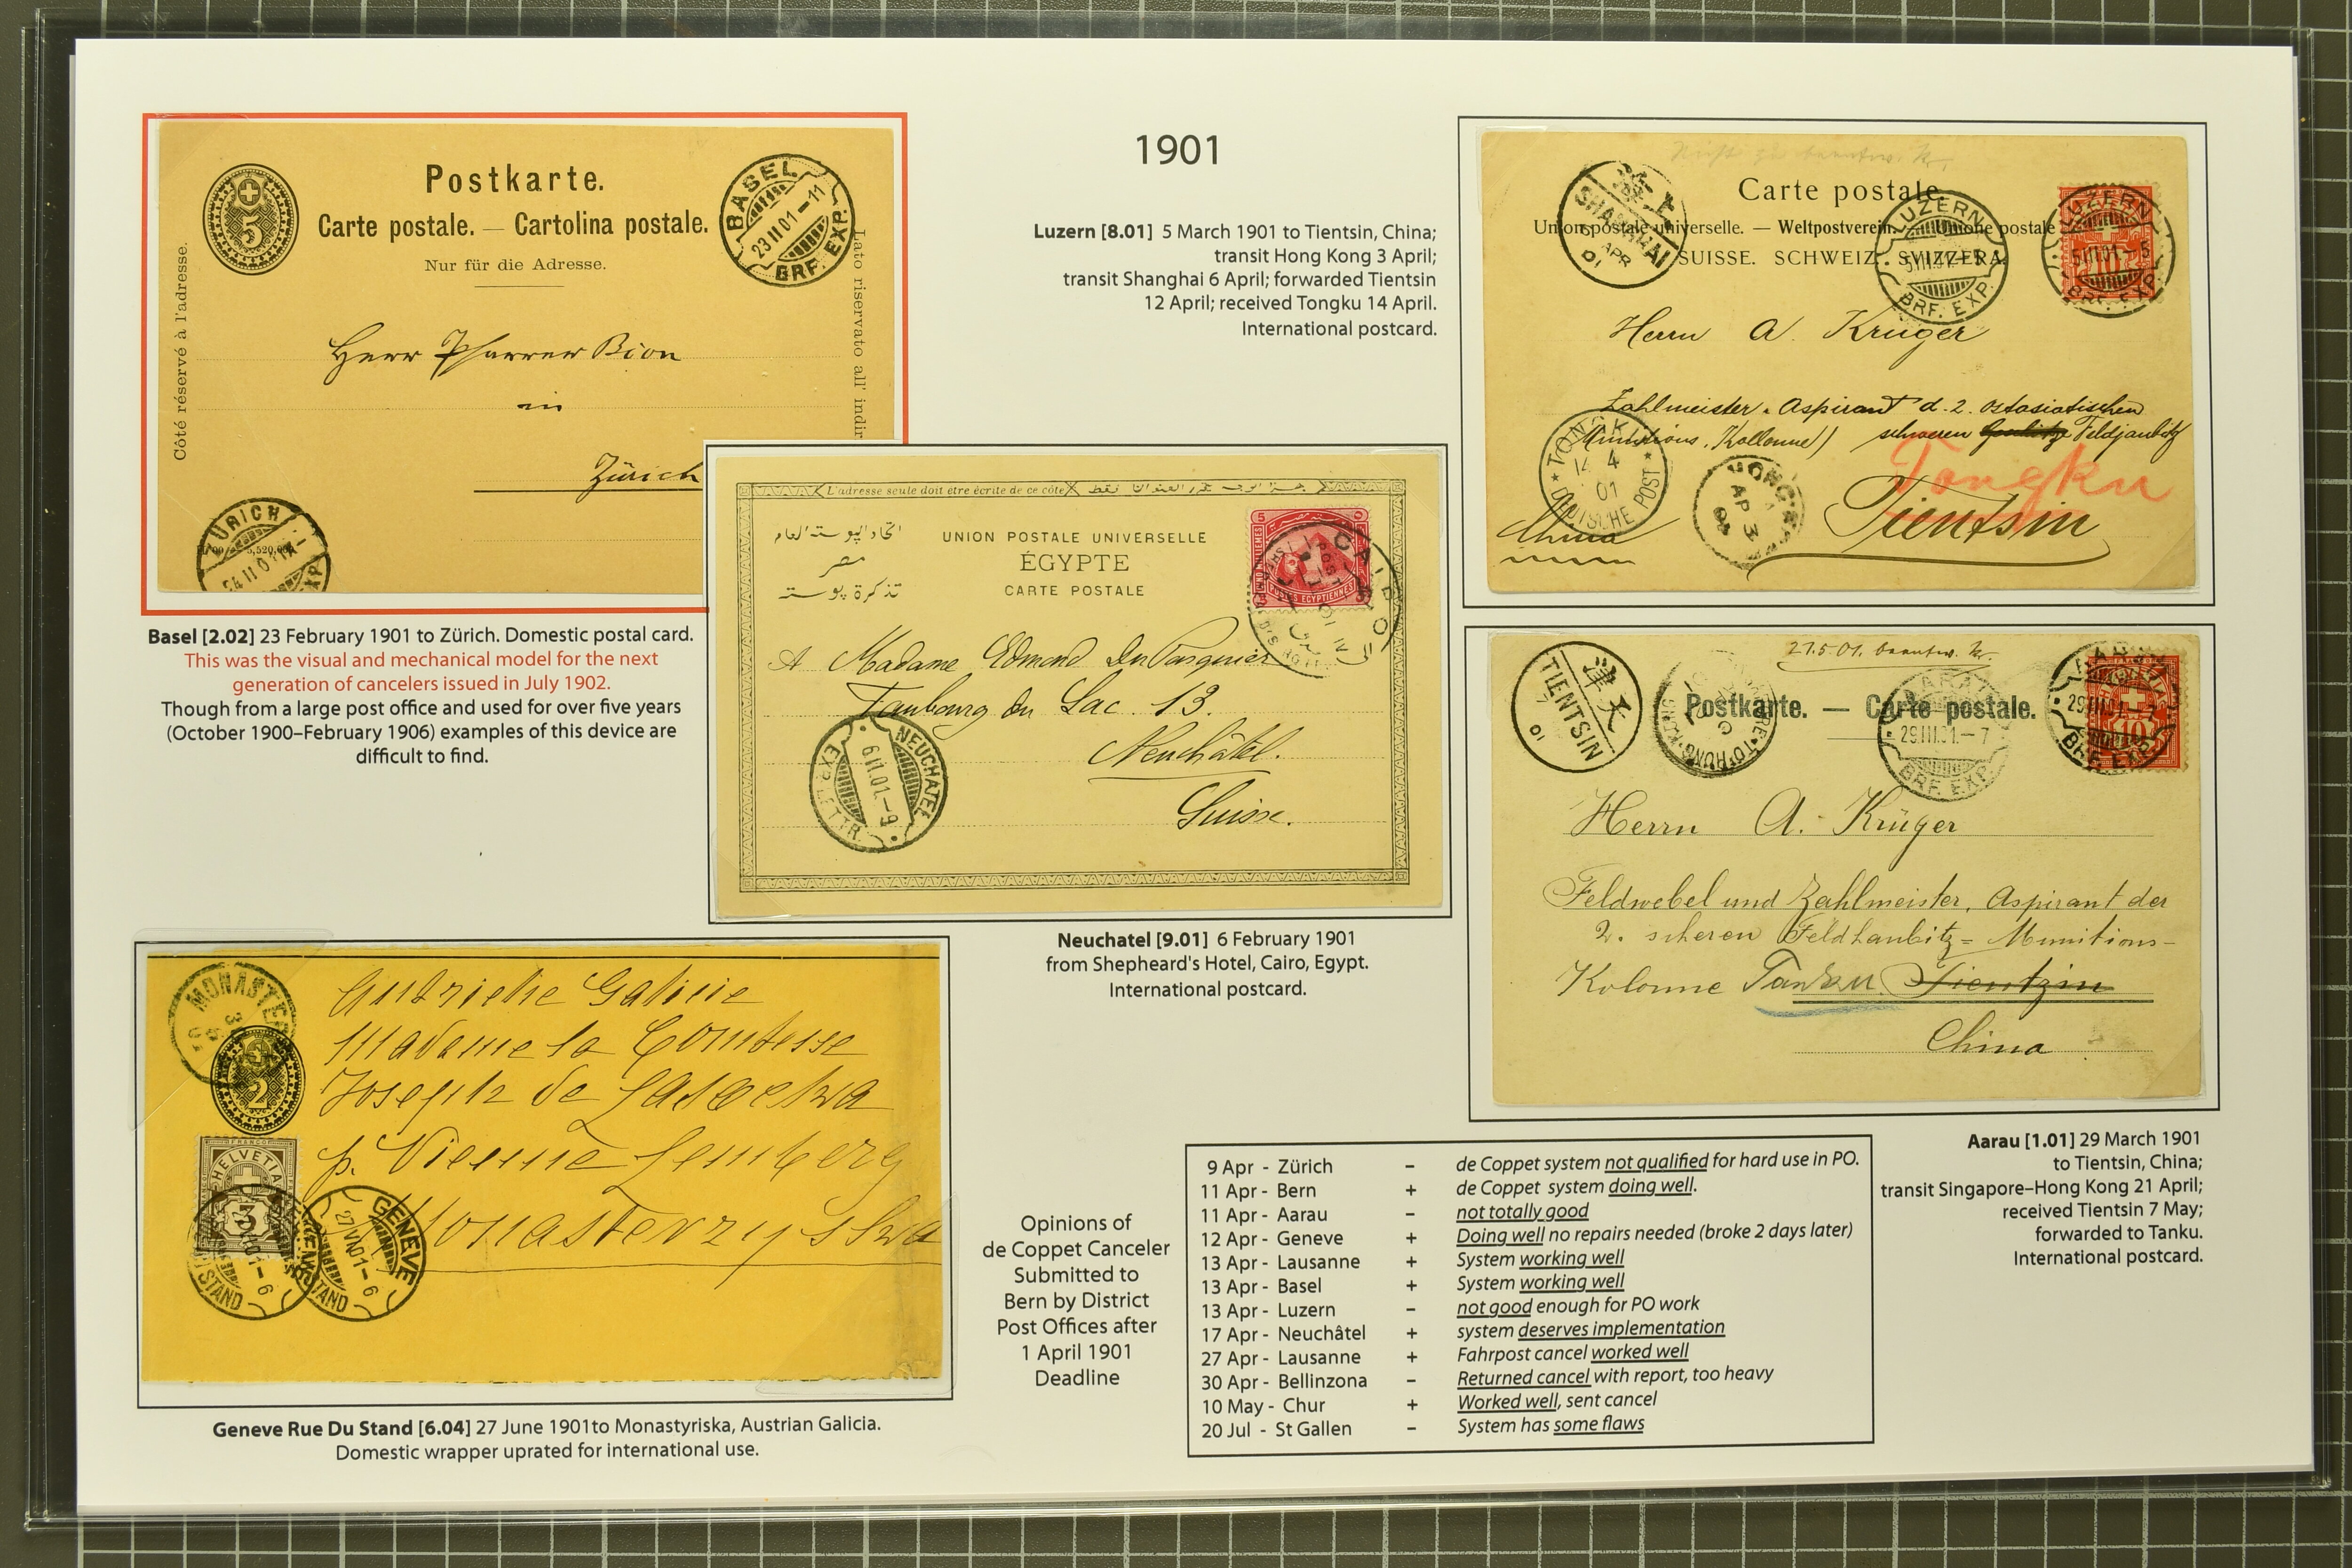 1901
Postkarte.
Carte postale. — Cartolina postale.
Nur für die Adresse.
Côté réservé à l'adresse.
Lato riservato all' indir
5
BASEL
23 II 01 – 11
BRF. EXP.
Herr Pfarrer Bion
in
Zürich
ZÜRICH
Basel [2.02] 23 February 1901 to Zürich. Domestic postal card.
This was the visual and mechanical model for the next
generation of cancelers issued in July 1902.
Though from a large post office and used for over five years
(October 1900–February 1906) examples of this device are
difficult to find.
Luzern [8.01] 5 March 1901 to Tientsin, China;
transit Hong Kong 3 April;
transit Shanghai 6 April; forwarded Tientsin
12 April; received Tongku 14 April.
International postcard.
Carte postale
Union postale universelle. — Weltpostverein. — Unione postale
SUISSE. SCHWEIZ. SVIZZERA.
SHANGHAI
APR
01
LUZERN
5 III 01 – 5
BRF. EXP.
LUZERN
5 III 01 – 5
BRF. EXP.
Herrn A. Krüger
Zahlmeister-Aspirant d. 2. ostasiatischen
schweren
TONGKU
14 4
01
DEUTSCHE POST
AP 3
Tongku
Tientsin
China
L'adresse seule doit être écrite de ce côté
اتحاد البوستة العام
مصر
تذكرة بوستة
UNION POSTALE UNIVERSELLE
ÉGYPTE
CARTE POSTALE
POSTES EGYPTIENNES
CAIRO
A Madame Edmond DuPasquier
Faubourg du Lac. 13.
Neuchâtel.
Suisse.
NEUCHATEL
6 II 01 – 9
EXP. LETTR.
Neuchatel [9.01] 6 February 1901
from Shepheard's Hotel, Cairo, Egypt.
International postcard.
21.5.01. beantw. Kr.
Postkarte. — Carte postale.
TIENTSIN
天津
7
01
29 III 01 – 7
BRF. EXP.
29 III 01 – 7
BRF. EXP.
Herrn A. Krüger
Feldwebel und Zahlmeister-Aspirant der
2. schweren Feldhaubitz-Munitions-
Kolonne Tanku Tientzin
China
Aarau [1.01] 29 March 1901
to Tientsin, China;
transit Singapore–Hong Kong 21 April;
received Tientsin 7 May;
forwarded to Tanku.
International postcard.
MONASTER
2
FRANCO
HELVETIA
3
GENEVE
27 VI 01 – 6
STAND
Autriche Galicie
Madame la Comtesse
Joseph de
p. Vienne Lemberg
Monasterzyska
Geneve Rue Du Stand [6.04] 27 June 1901to Monastyriska, Austrian Galicia.
Domestic wrapper uprated for international use.
Opinions of
de Coppet Canceler
Submitted to
Bern by District
Post Offices after
1 April 1901
Deadline
9 Apr - Zürich – de Coppet system not qualified for hard use in PO.
11 Apr - Bern + de Coppet system doing well.
11 Apr - Aarau – not totally good
12 Apr - Geneve + Doing well no repairs needed (broke 2 days later)
13 Apr - Lausanne + System working well
13 Apr - Basel + System working well
13 Apr - Luzern – not good enough for PO work
17 Apr - Neuchâtel + system deserves implementation
27 Apr - Lausanne + Fahrpost cancel worked well
30 Apr - Bellinzona – Returned cancel with report, too heavy
10 May - Chur + Worked well, sent cancel
20 Jul - St Gallen – System has some flaws